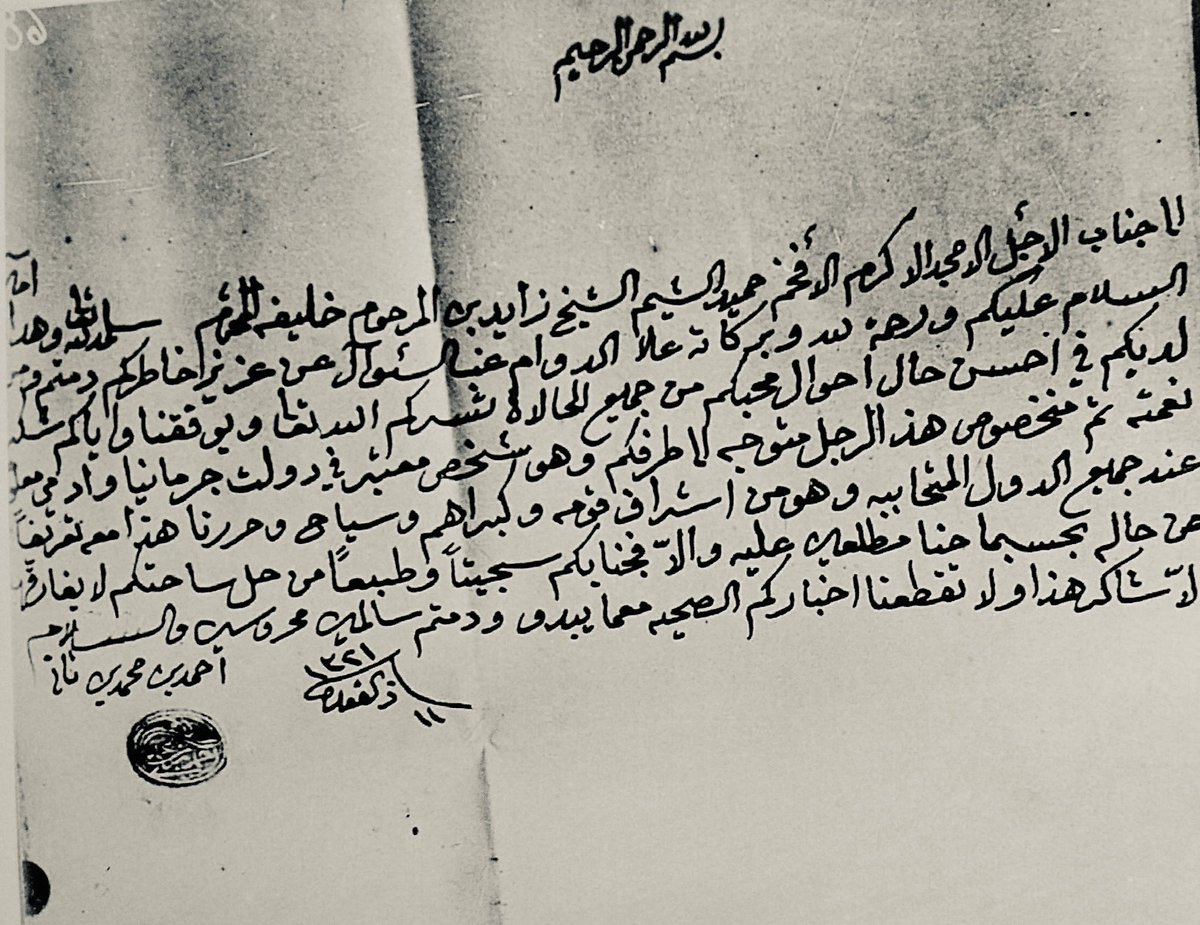 بسم الله الرحمن الرحيم
الا جناب الاجل الامجد الاكرم الأفخم حميد الشيم الشيخ زايد بن المرحوم خليفه المحترم سلمه الله تعالى
السلام عليكم ورحمة الله وبركاته علا الدوام غب السئوال عن عزيز خاطركم دمتم
لديكم في احسن حال احوال محبكم من جميع الحالاة تسركم الله تعا ويوفقنا واياكم
نعمته ثم منخصوص هذا الرجل متوجه الا طرفكم وهو شخص معتبر في دولت جرمانيا وادمي
عند جميع الدول المتحابيه وهو من اشراف قومه وكبراهم وسياح وحررنا هذا معه تعريفاً
عن حاله بحسبما حنا مطلعين عليه والاّ فجنابكم سجيتاً وطبيعتاً من حل ساحتكم لا يفارق
الاّ شاكر هذا ولا تقطعنا اخباركم الصحيه معما يبدو ودمتم سالمين محروسين والسلام
١١ ذلقعده ١٣٢١
احمد بن محمد بن ثاني